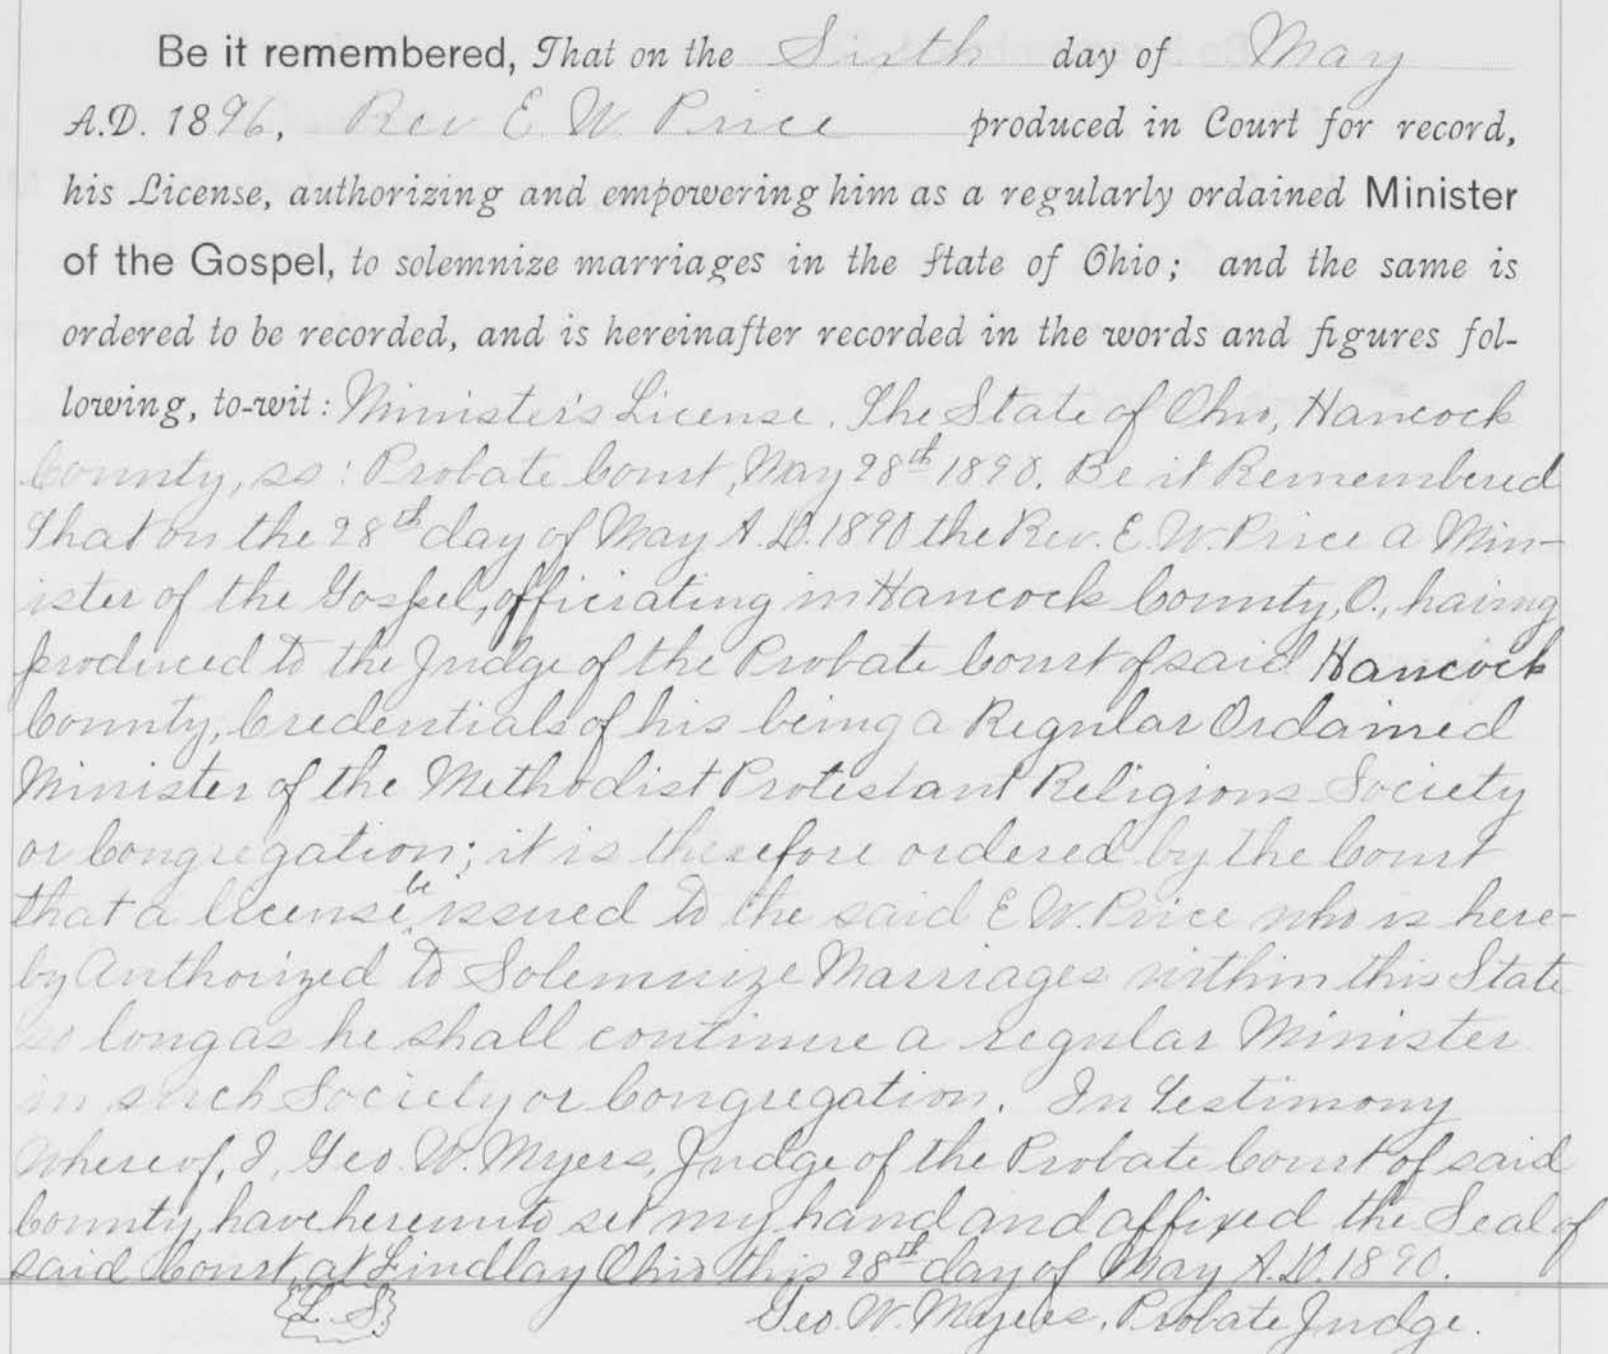 Be it remembered, That on the Sixth day of May
A.D. 1896, Rev E W. Price produced in Court for record,
his License, authorizing and empowering him as a regularly ordained Minister
of the Gospel, to solemnize marriages in the State of Ohio; and the same is
ordered to be recorded, and is hereinafter recorded in the words and figures fol-
lowing, to-wit: Minister's License. The State of Ohio, Hancock
County, ss: Probate Court, May 28th 1890. Be it Remembered
That on the 28th day of May A.D. 1890 the Rev. E. W. Price a Min-
ister of the Gospel, officiating in Hancock County, O., having
produced to the Judge of the Probate Court of said Hancock
County, Credentials of his being a Regular Ordained
Minister of the Methodist Protestant Religious Society
or Congregation; it is therefore ordered by the Court
that a license be issued to the said E W. Price who is here-
by Authorized to Solemnize Marriages within this State
so long as he shall continue a regular Minister
in such Society or Congregation. In Testimony
whereof, I, Geo. W. Myers, Judge of the Probate Court of said
County, have hereunto set my hand and affixed the Seal of
said Court, at Findlay Ohio this 28th day of May A.D. 1890.
L. S. Geo. W. Myers, Probate Judge.